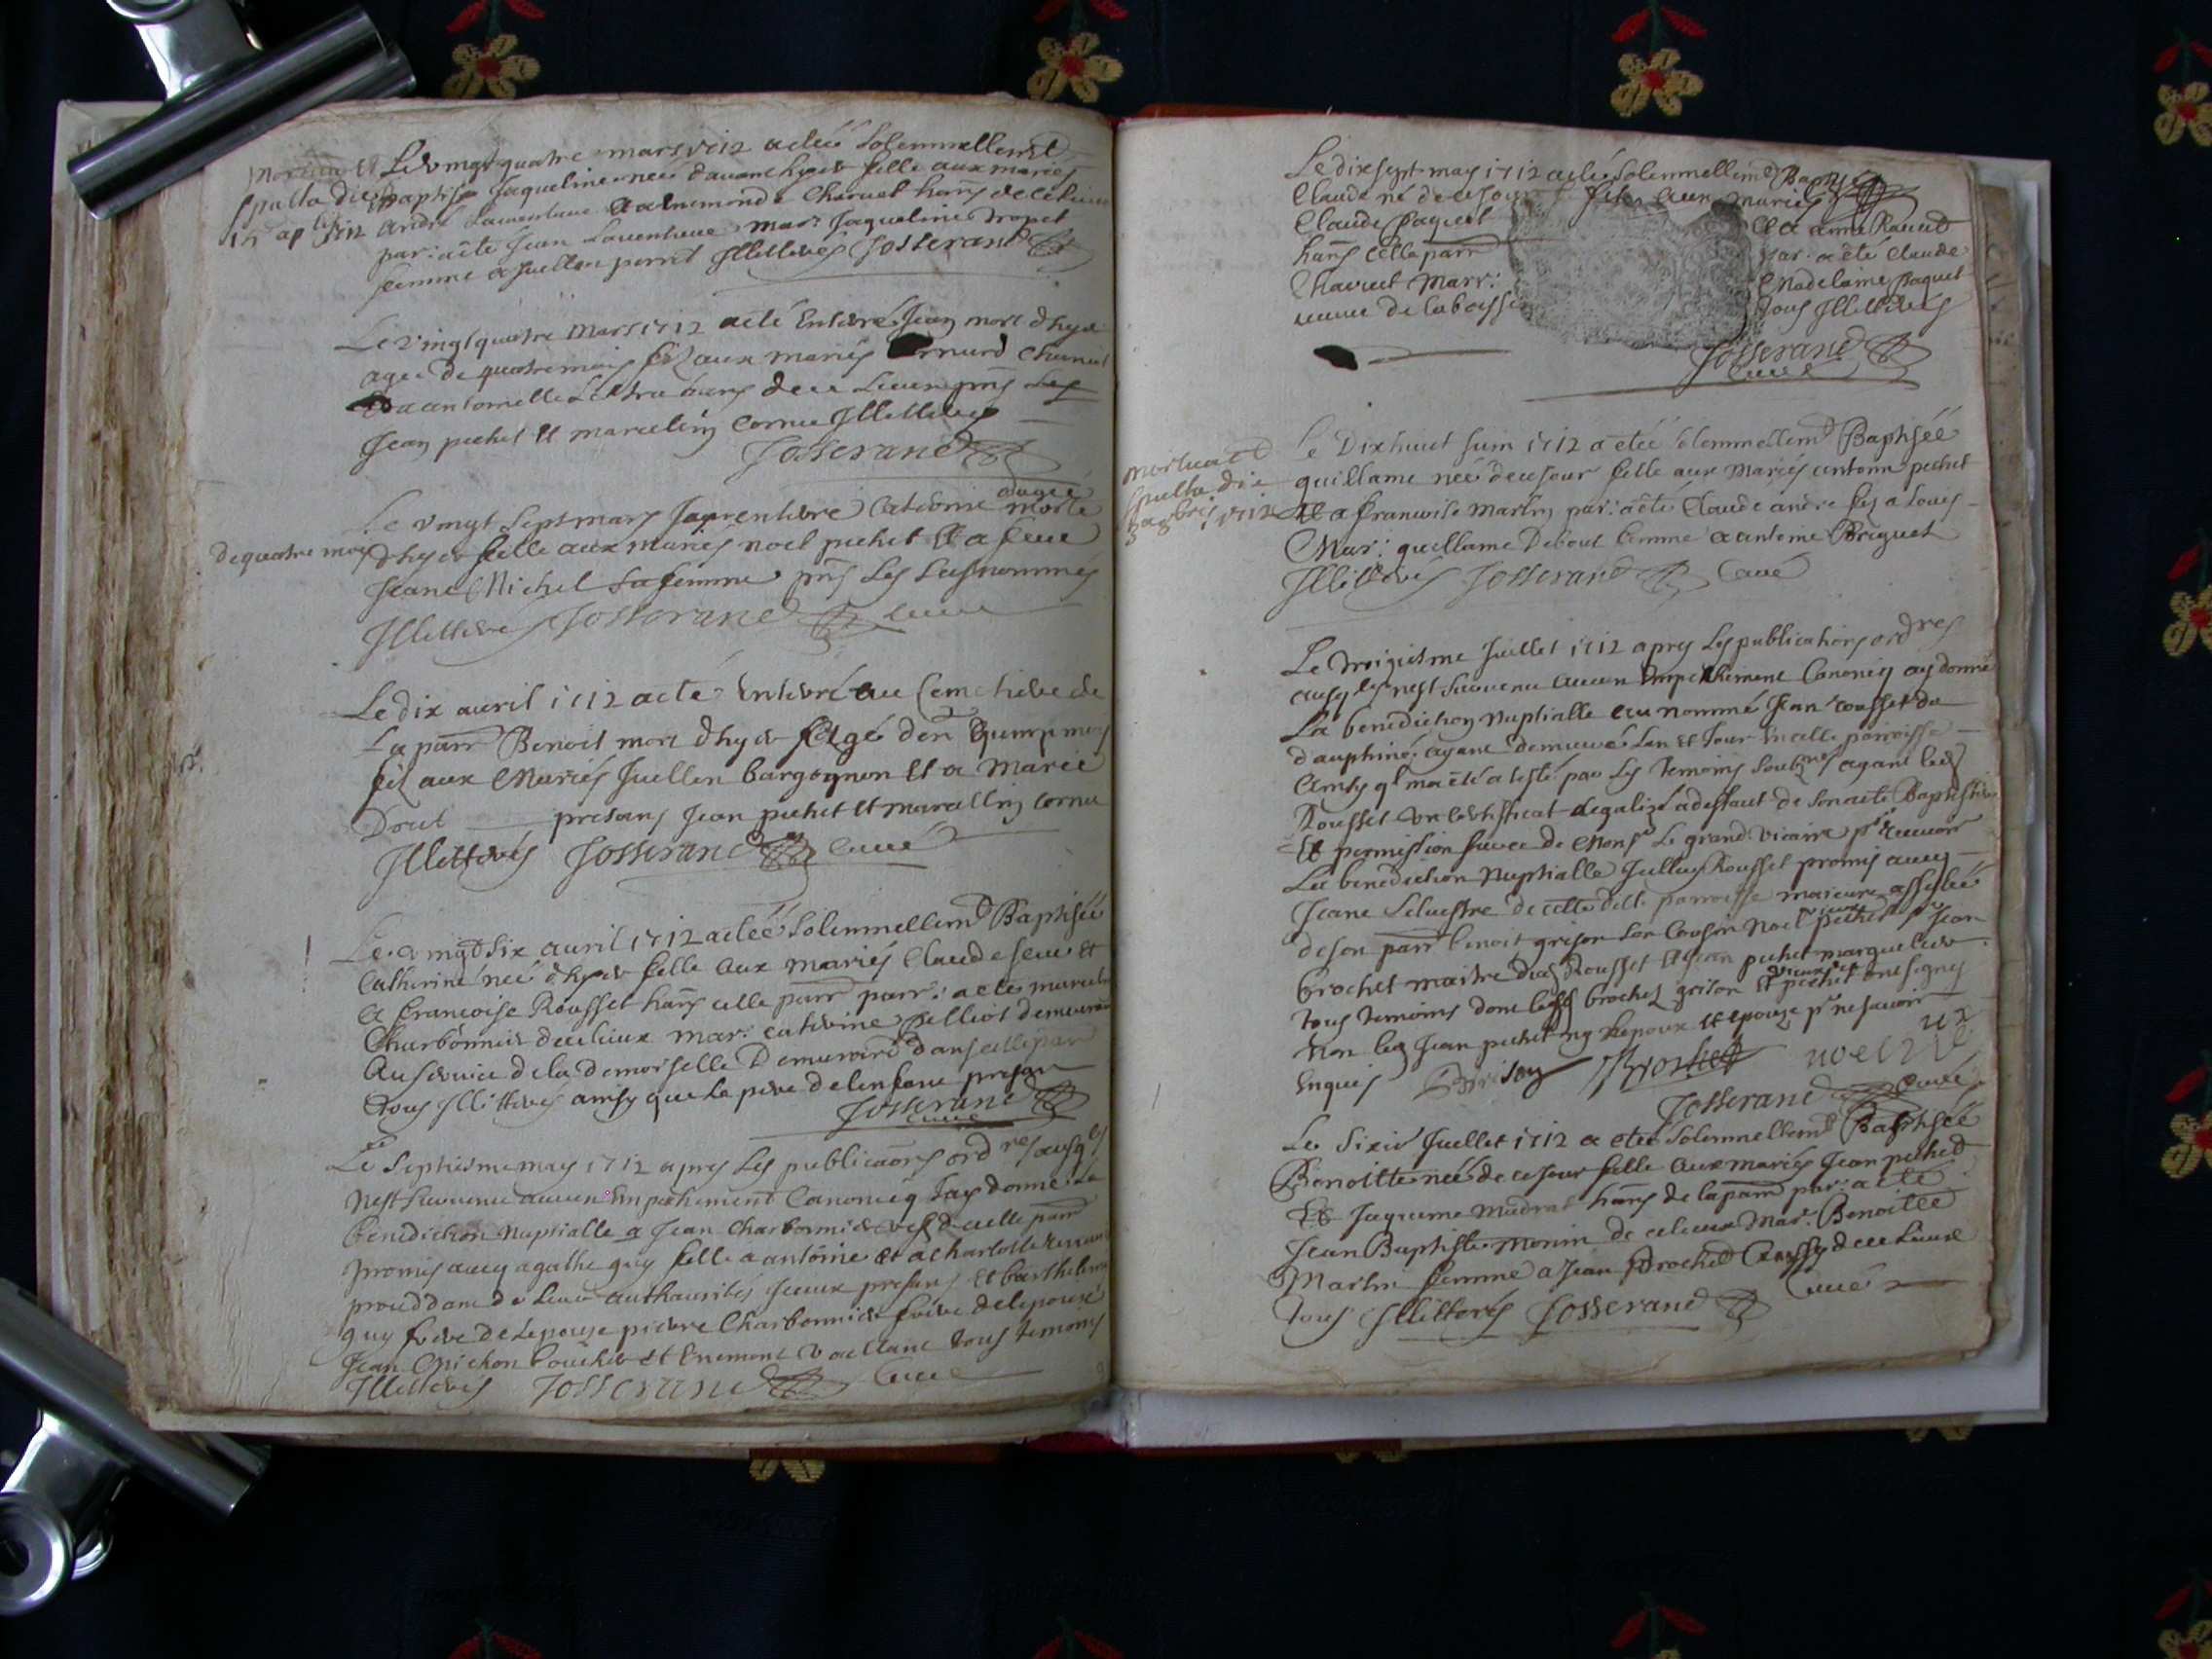 Le vingt quatre mars 1712 a etéé solemnellemt
spulta die Baptisé Jaqueline neé d'avanthyer fille aux mariés
14 ap 1712 André Laventure et a enimonde Charvet hans de ce lieu
par: a éte Jean Laventure mar: Jaqueline Tropet
femme a Juellen perret Illitterés Josserand
Le vingt quatre Mars 1712 a eté Enterré Jean mort dhyer
agee de quatre mois filz aux mariés
a antoinette hans de ce Lieu pns Les
Jean pechet et marcelin Cornu Illitterés
Josserand
agée
Le vingt sept mars Jay enterré Catherine morte
de quatre mois dhyer fille aux mariés noel pechet et a feue
Jeane Michel sa femme pns Les susnommés
Illitterés Josserand curé
Le dix avril 1712 a eté Enterré au Cemetiere de
La parr Benoit mort dhyer agé den quinze mois
filz aux Mariés Juellen bargognon et a Marie
Dout presans Jean pechet et marcellin cornu
Illitterés Josserand curé
Le vingt six avril 1712 a etéé solemnellemt Baptiséé
Catherine neé dhyer fille aux mariés Claude seve et
a francoise Rousset hans cette parr parr: a eté
Charbonnier de ce lieux mar: catherine pelliot demeurant
Au service de la demoiselle Demurard dans cette parr
tous Illitterés ainsy que Le pere de lenfant presan
Josserand
curé
Le septiesme may 1712 apres Les publicaons ordres ausqls
nest survenu aucun Empechement Canonicq Jay donné La
Benediction Nuptialle a Jean Charbonnier de cette parr
promis avecq agathe guy fille a antoine et a charlotte
proud dan de Leur authorités Iceux presans et barthelemy
guy frere de Lepouse pierre Charbonnier frere de lepoux
Jean Michon boucher et Enemont vaillant tous temoins
Illitterés Josserand curé
Le dix sept may 1712 a eté solemnellemt Baptisé
Claude né de ce jour filz aux Mariés
Claude paquet et a anne Ravet
hans cette parr par: a été Claude
Charvet Marr: Madelaine paquet
veuve de laboisse tous Illitterés
Josserand
curé
mortua et Le Dixhuict Juin 1712 a etéé solemnellemt Baptiséé
spulta die guillame neé de ce Jour fille aux Mariés antoine pechet
1712 et a francoise Martin par: a éte Claude andré filz a Louis
Mar: guillame Debout femme a antoine Briguet
Illitterés Josserand Curé
Le troisiesme Juillet 1712 apres Les publications ordres
ausqls nest survenu aucun Empechement Canonicq ay donné
La benediction Nuptialle au nommé Jean rousset du
dauphiné ayant demeuré Lan et Jour en cette parroisse
ainsy ql ma eté atesté par Les temoins soubznés ayant led
Rousset un certificat degalizé a deffaut de son acte Baptistere
Et permission signee de Monsr Le grand vicaire pr recevoir
La benediction Nuptialle Rousset promis avecq
Jeane Silvestre de cette dite parroisse maieure assistéé
de son parr benoit grison son Cousin Noel pechet Jean
brochet maitre dud Rousset et Jean pechet marguelier
tous temoins dont lesd brochet grison et pechet ont signés
non led Jean pechet ny Lepoux et epouze pr ne scavoir
Enquis Grison Brochet noel
Josserand Curé
Le Sixie Juillet 1712 a etéé solemnellemt Baptiséé
Benoitte neé de ce Jour fille aux mariés Jean pechet
Et Jaqueme Madrat hans de la parr par: a eté
Jean Baptiste Monin de ce lieux Mar: Benoitte
Martin femme a Jean Brochet Aussy de ce Lieux
tous Illitterés Josserand Curé